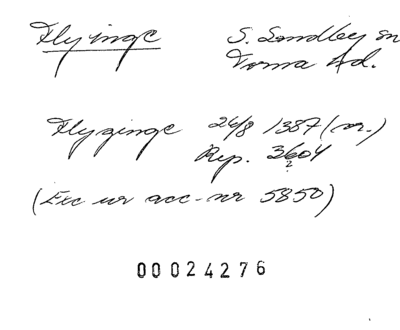 Flyinge S. Sandby sn
Torna hd.
Flyginge 24/8 1387 (or.)
Rep. 3604
?
(Exc ur acc-nr 5850)
00024276